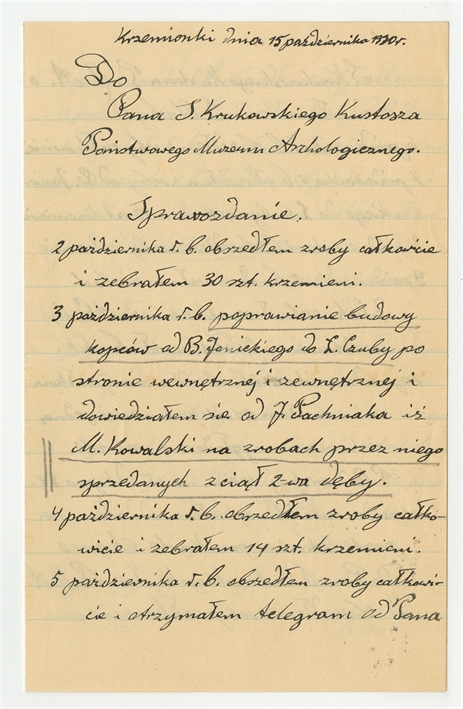 Krzemionki dnia 15 października 1930 r.
Do
Pana S. Krukowskiego Kustosza
Państwowego Muzeum Archologicznego.
Sprawozdanie.
2 października r. b. obszedłem zroby całkowicie
i zebrałem 30 szt. krzemieni.
3 października r. b. poprawianie budowy
kopców od B. Janickiego do L. Czuby po
stronie wewnętrznéj i zewnętrznéj i
dowiedziałem się od J. Pachniaka iż
M. Kowalski na zrobach przez niego
sprzedanych zciął 2-wa dęby.
4 października r. b. obszedłem zroby całko-
wicie i zebrałem 14 szt. krzemieni.
5 października r. b. obszedłem zroby całkowi-
cie i otrzymałem telegram od Pana